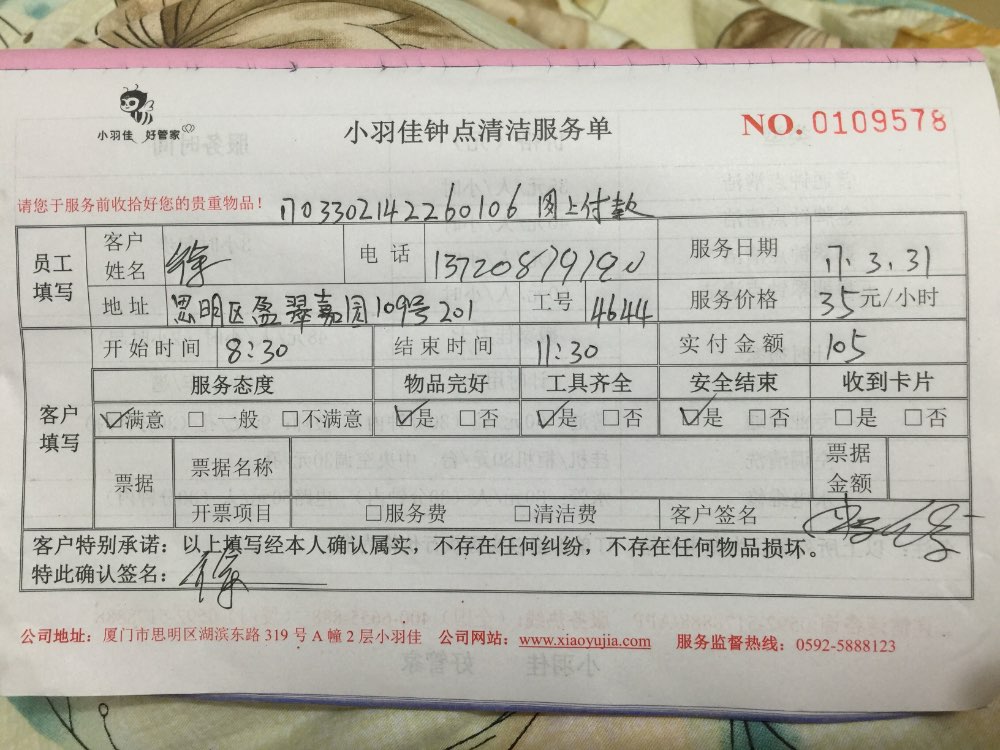 小羽佳 好管家
小羽佳钟点清洁服务单
NO. 0109578
请您于服务前收拾好您的贵重物品！
1703302142260106 网上付款
员工填写 客户姓名 徐 电话 服务日期 17.3.31
地址 思明区盈翠嘉园109号201 工号 4644 服务价格 35元/小时
客户填写 开始时间 8:30 结束时间 11:30 实付金额 105
服务态度 物品完好 工具齐全 安全结束 收到卡片
☑满意 □一般 □不满意 ☑是 □否 ☑是 □否 ☑是 □否 □是 □否
票据 票据名称 票据金额
开票项目 □服务费 □清洁费 客户签名
客户特别承诺：以上填写经本人确认属实，不存在任何纠纷，不存在任何物品损坏。
特此确认签名：徐
公司地址：厦门市思明区湖滨东路 319 号 A 幢 2 层小羽佳 公司网站：www.xiaoyujia.com 服务监督热线：0592-5888123